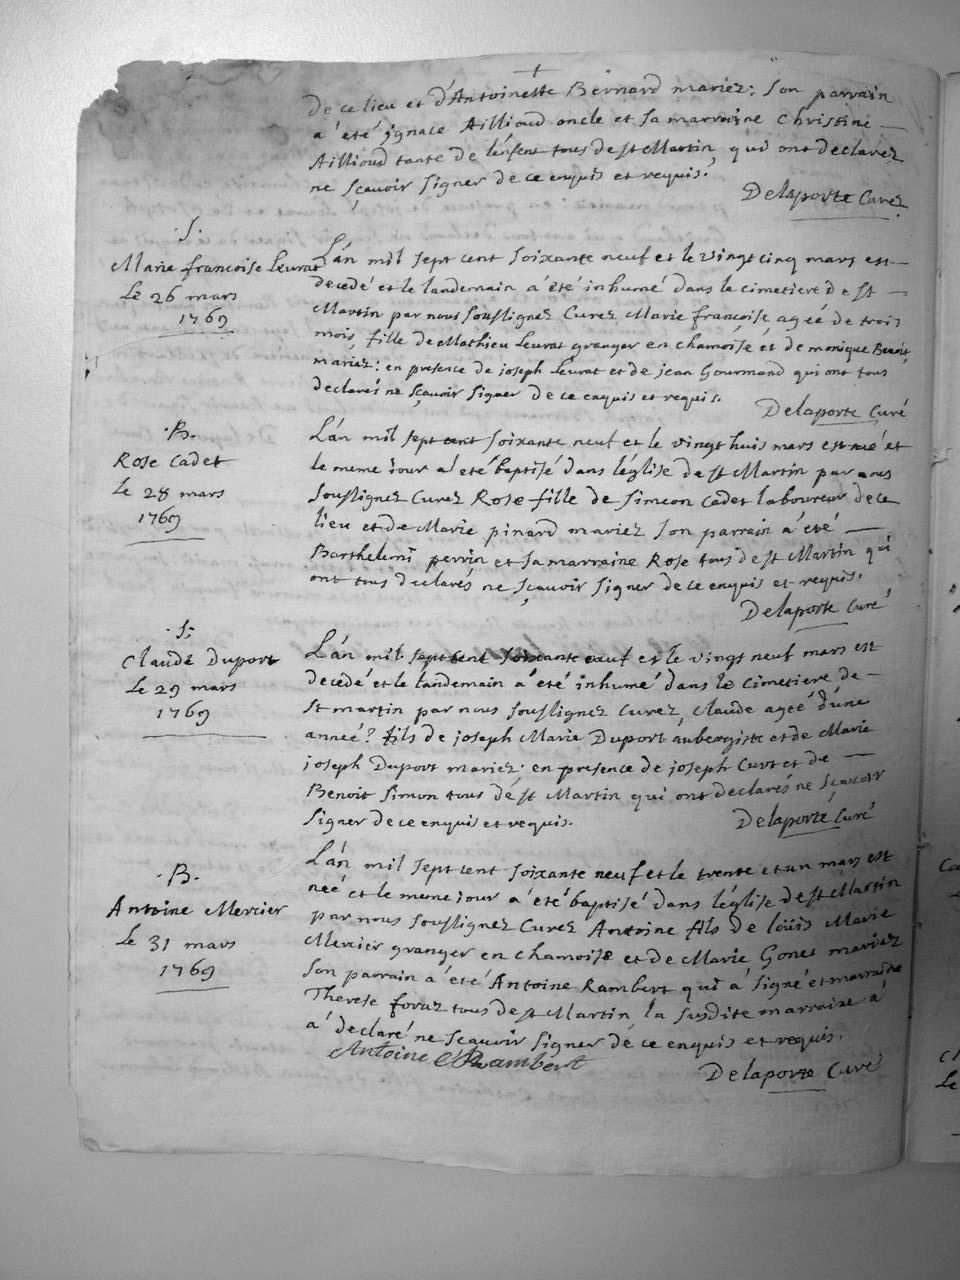 de ce lieu et d'Antoinette Bernard mariez; Son parrain
a été ignace Aillioud oncle et sa marraine Christine
Aillioud tante de l'enfent tous de st Martin qui ont declarez
ne sçavoir signer de ce enquis et requis.
Delaporte Curez
.S.
Marie francoise Leurat
Le 26 mars
1769
L'án mil sept cent soixante neuf et le vingt cinq mars est
decedé et le landemain a été inhumé dans le cimetiere de st
Martin par nous soussignez Curez Marie françoise ageé de trois
mois, fille de Mathieu Leurat granger en chamoise et de monique Benoit
mariez; en presence de joseph Leurat et de jean Gourmand qui ont tous
declarés ne sçavoir signer de ce enquis et requis.
Delaporte Curé
.B.
Rose Cadet
Le 28 mars
1769
L'án mil sept cent soixante neuf et le vingt huis mars est neé et
le meme jour a été baptisé dans l'église de st Martin par nous
soussignez Curez Rose fille de Simeon Cadet laboureur de ce
lieu et de Marie pinard mariez son parrain a été
Barthelemi perrin et sa marraine Rose tous de st Martin qui
ont tous declarés ne sçavoir signer de ce enquis et requis.
Delaporte Curé
.S.
Claude Duport
Le 29 mars
1769
L'án mil sept cent soixante neuf et le vingt neuf mars est
decedé et le landemain a été inhumé dans le cimetiere de
st martin par nous soussignez Curez, Claude ageé d'une
anneé? fils de joseph Marie Duport aubergiste et de Marie
joseph Duport mariez; en presence de joseph Curt et de
Benoit Simon tous de st Martin qui ont declarés ne sçavoir
signer de ce enquis et requis.
Delaporte Curé
.B.
Antoine Mercier
Le 31 mars
1769
L'án mil sept cent soixante neuf et le trente et un mars est
neé et le meme jour a été baptisé dans l'église de st Martin
par nous soussignez Curez Antoine fils de loüis Marie
Mercier granger en chamoise et de Marie Gonet mariez
son parrain a été Antoine Rambert qui a signé et marraine
Therese foraz tous de st Martin la susdite marraine a
a declaré ne sçavoir signer de ce enquis et requis.
Antoine Rambert
Delaporte Curé